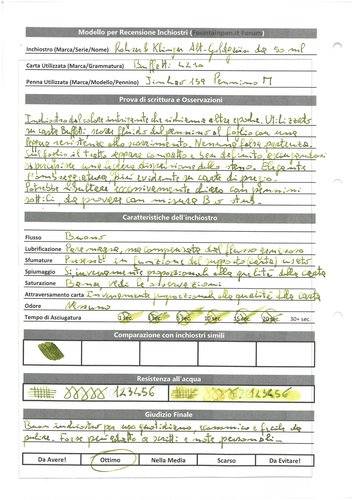 Modello per Recensione Inchiostri (Fountainpen.it Forum)
Inchiostro (Marca/Serie/Nome) Rohrer & Klinger Alt-Goldgrün da 50 ml
Carta Utilizzata (Marca/Grammatura) Buffetti
Penna Utilizzata (Marca/Modello/Pennino) Jinhao 159 Pennino M
Prova di scrittura e Osservazioni
Inchiostro dal colore che richiama altre epoche. Utilizzato
su carta Buffetti scorre fluido dal pennino al foglio con una
leggera resistenza allo scorrimento. Nessuna falsa partenza.
Sul foglio il testo appare compatto e ben definito
Elegante
l'ombreggiatura più evidente su carta di pregio.
Potrebbe risultare eccessivamente chiaro con pennini
sottili, da provare con misura B o stub.
Caratteristiche dell'inchiostro
Flusso Buono
Lubrificazione Pare magra, ma compensata dal flusso generoso
Sfumature Presenti in funzione del supporto (carta) usato
Spiumaggio Sì inversamente proporzionale alla qualità della carta
Saturazione Buona, vedi le osservazioni
Attraversamento carta Inversamente proporzionale alla qualità della carta
Odore Nessuno
Tempo di Asciugatura 1 sec. 5 sec. 10 sec. 15 sec. 20 sec. 30+ sec.
Comparazione con inchiostri simili
Resistenza all'acqua
123456 123456
Giudizio Finale
Buon inchiostro per uso quotidiano, economico e facile da
pulire. Forse più adatto a scritti e note personali.
Da Avere! Ottimo Nella Media Scarso Da Evitare!